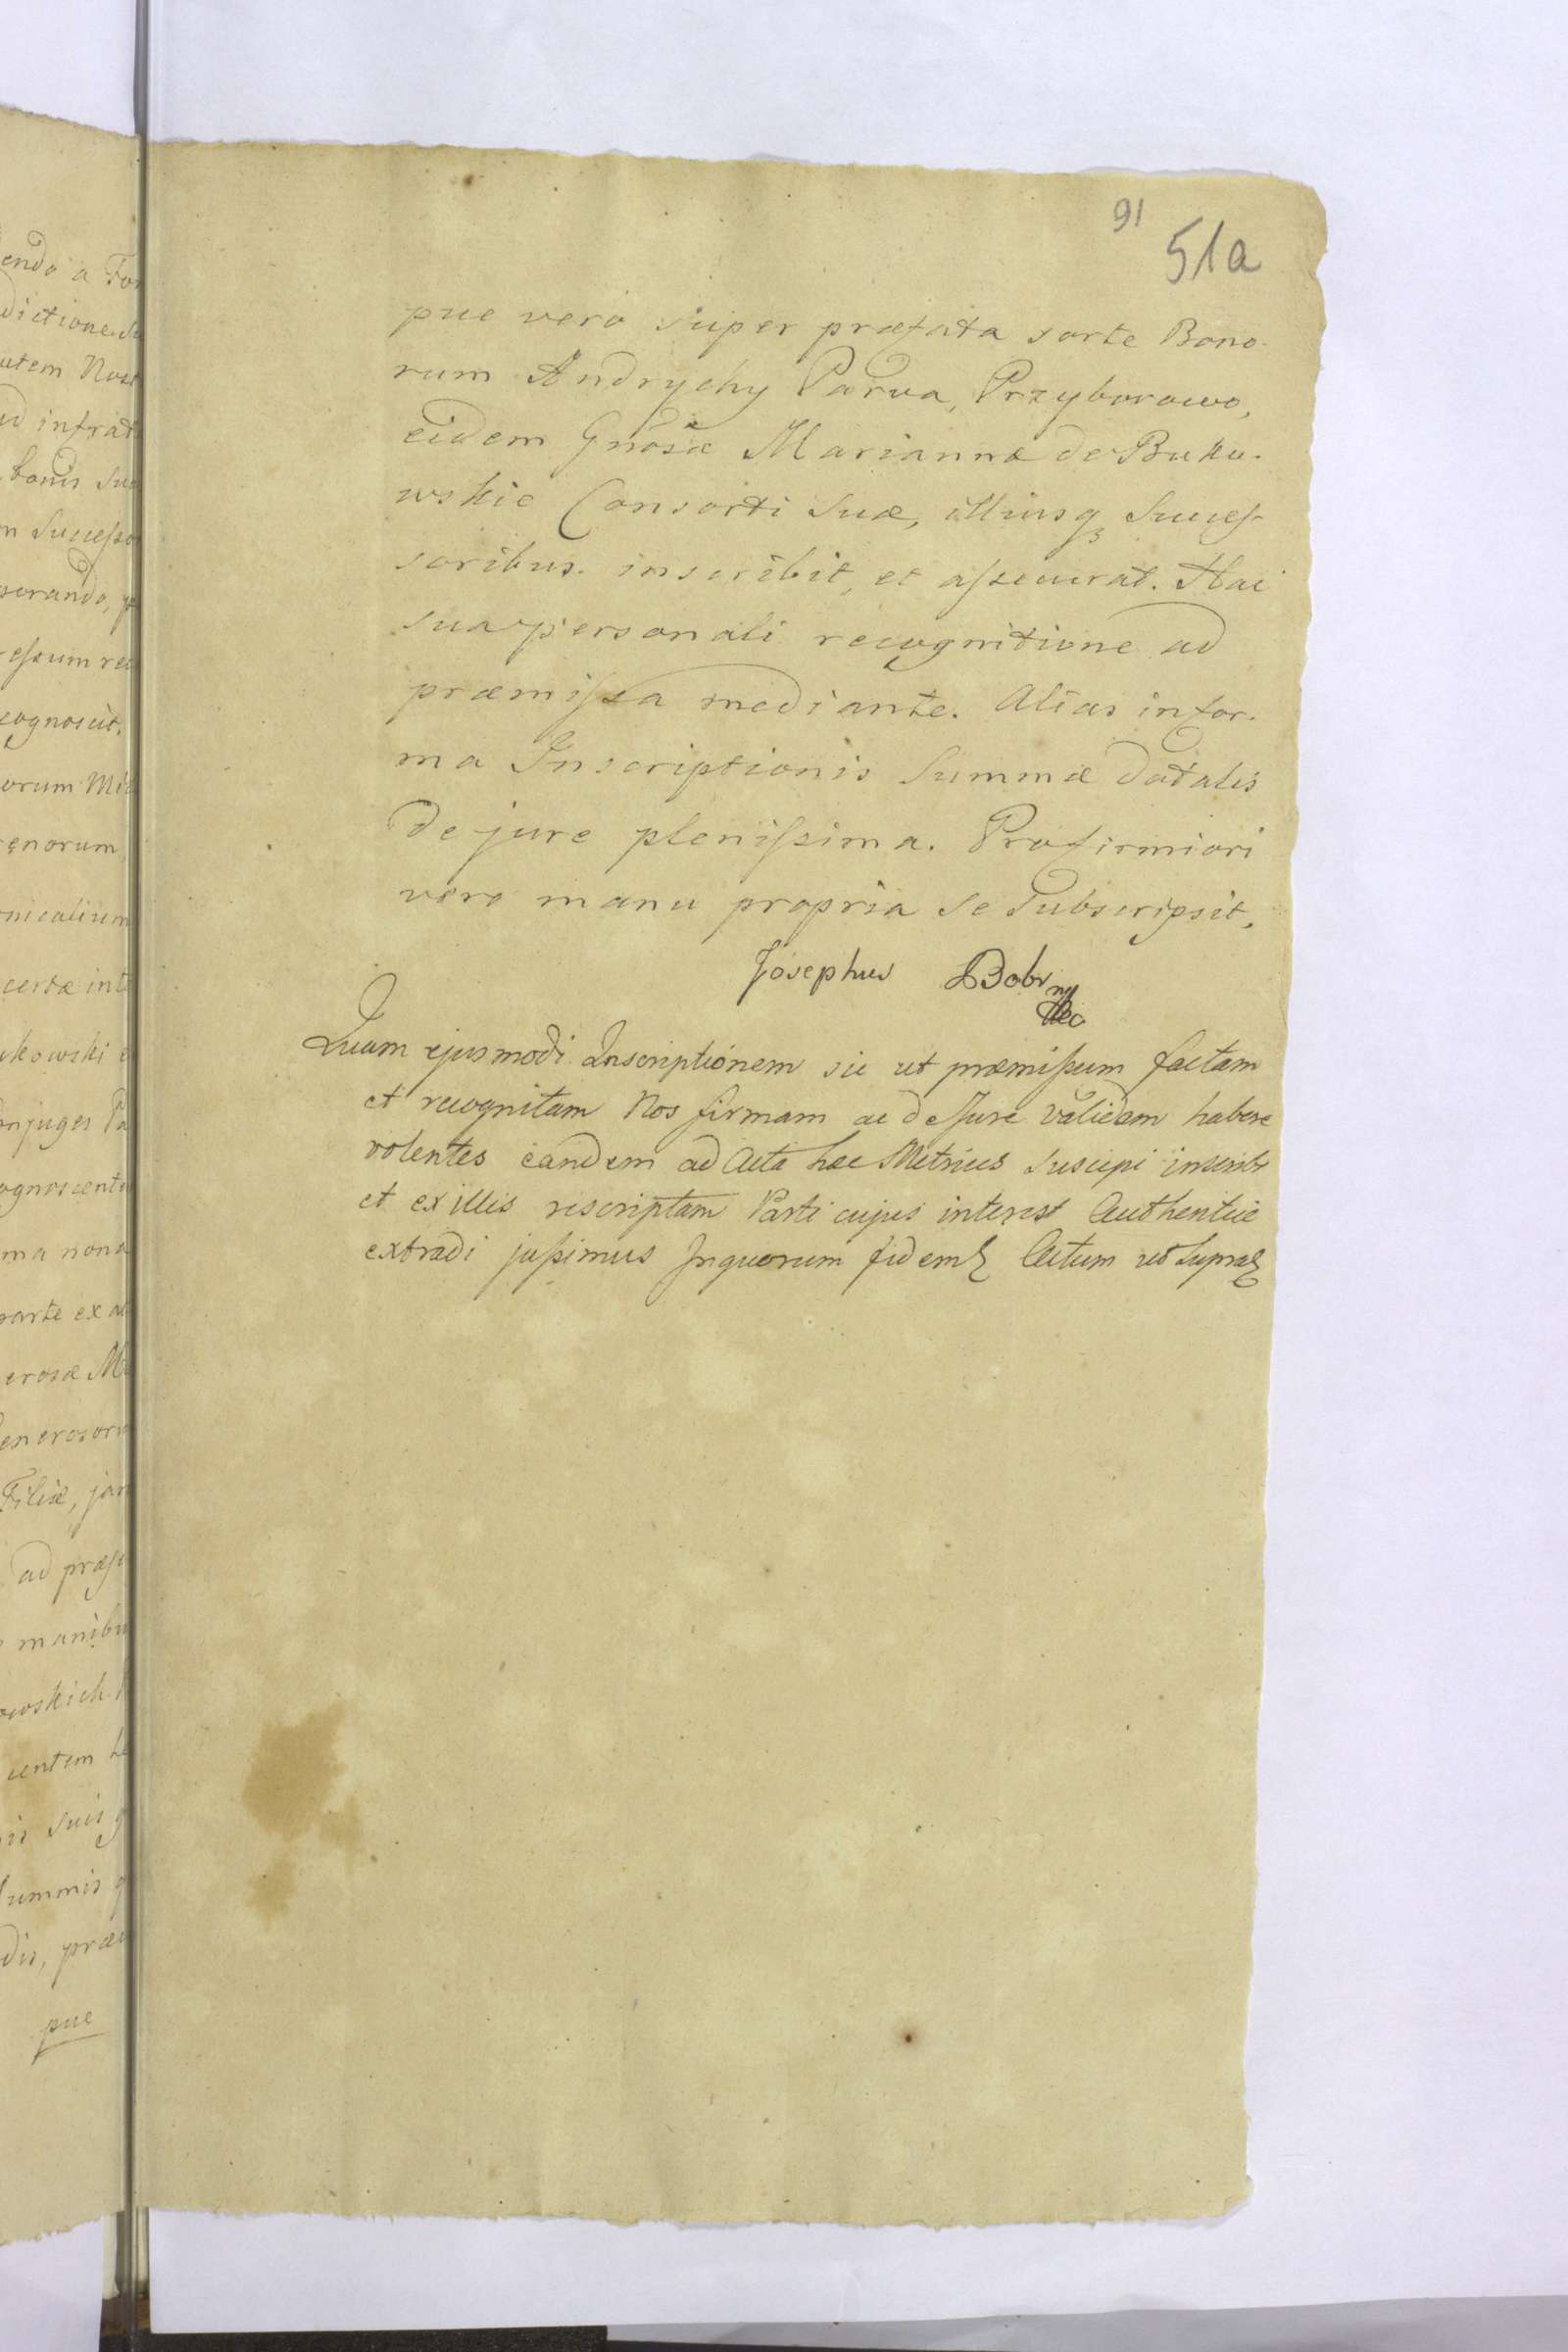 91
51a
pue vero super præfata sorte Bono-
rum Andrychy Parva, Przyborowo,
eidem Gnosæ Mariannæ de Buko-
wskie Consorti Suæ, illiusq Succeſ-
soribus. inscribit, et aſsecurat. Hac
sua personali recognitione ad
præmiſsa mediante. Alias in for-
ma Inscriptionis Summæ dotalis
de jure pleniſsima. Pro firmiori
vero manu propria se subscripsit.
Josephus Bobr
Quam ejusmodi Inscriptionem sic ut præmißum factam
et recognitam Nos firmam ac de Jure validam habere
volentes eandem ad Acta hæc Metrices suscipi inscribi
et ex illis rescriptam Parti cujus interest Authentice
extradi jußimus In quorum fidem Actum ut Supra
endo a For
dictione Su
utem Nost
infra
bonis Suc
n Succeſso
serando, p
eſsum rec
cognoscit.
orum Mi
enorum
certæ int
kowski e
njuges Pa
ognoscent
ma nona
parte ex al
erosæ Ma
enerosoru
Filiæ, jan
ad præſe
manibu
owskich
centem
is suis q
Summis q
dis, præci
pue